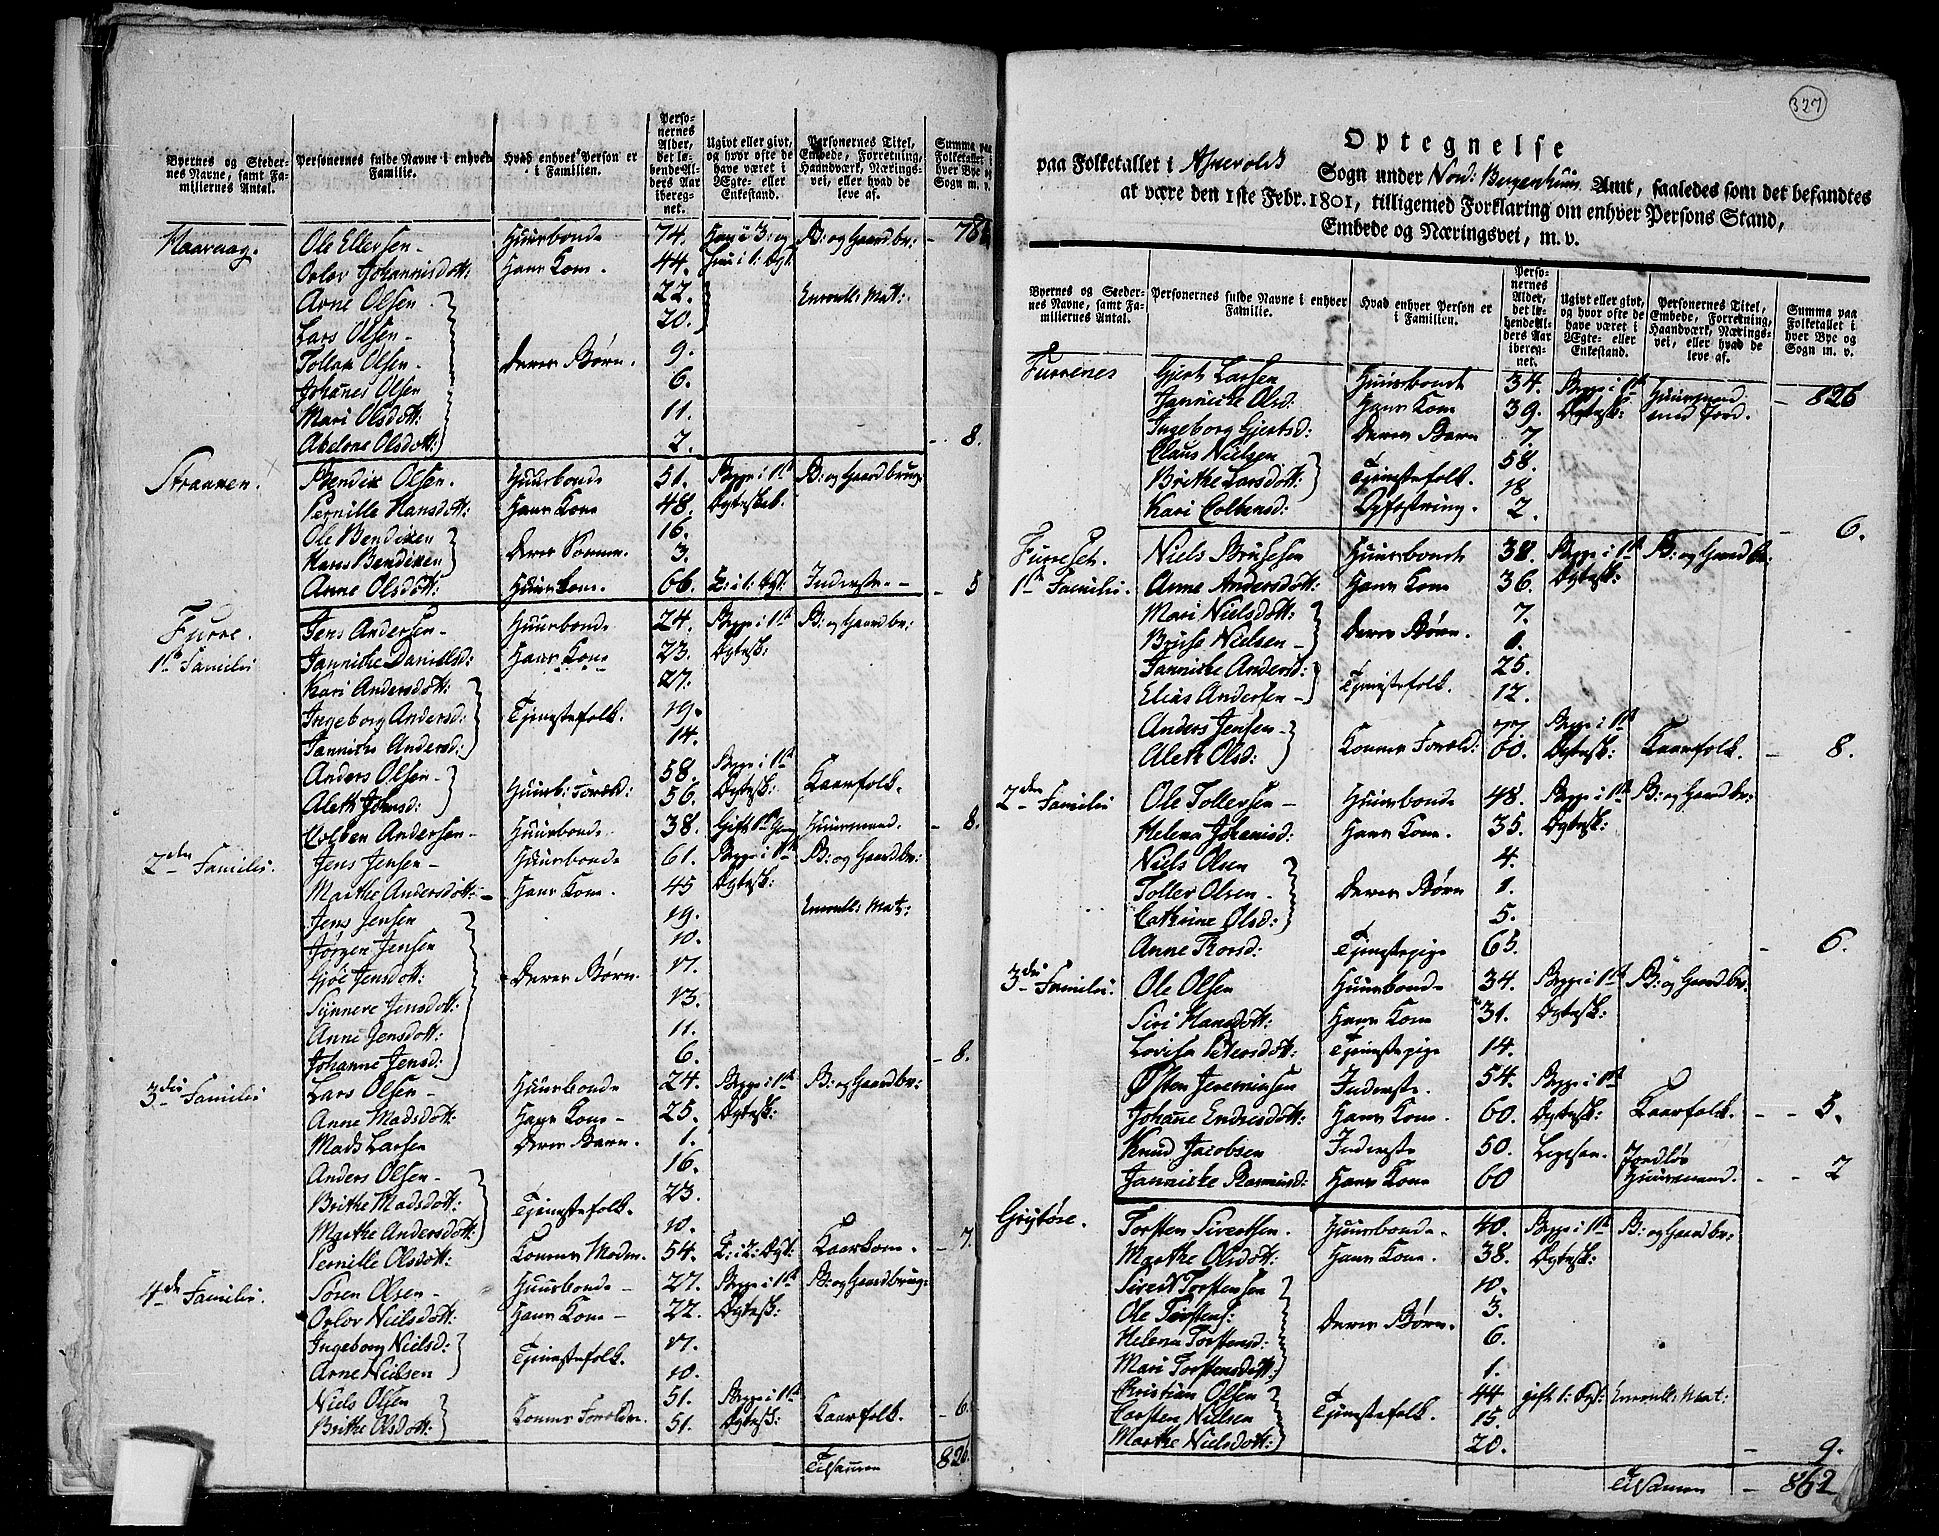 Byernes og Steder- nes Navne, samt Fa- miliernes Antal. Personernes fulde Navne i enhver Familie. Hvad enhver Person er i Familien. Perso- nernes Alder, det lø- bende Al- ders Aar iberegnet. Ugivt eller givt, og hvor ofte de have været i Ægte- eller Enkestand. Personernes Titel, Embede, Forretning, Haandværk, Nærings- vei, eller hvad de leve af. Summa paa Folketallet i hver Bye og Sogn m. v.
Ole Ellersen - Huusbonde 74. B: og Gaardbr:
Orlov Johannisdott: Hans Kone. 44.
Arne Olsen 22. Enroull: Mat:
Lars Olsen - 20.
Tollak Olsen - Deres Børn. 9.
Johanes Olsen 6.
Mari Olsdott: 11.
Abelone Olsdott: 2. 8.
Straumen. Bendix Olsen. Huusbonde 51. Begge i 1ste B: og Gaardbrug
Pernille Hansdott: Hans Kone 48. Ægtesk.
Ole Bendixen 16.
Hans Bendixen Deres Sønner. 3.
Anne Olsdott: Huuskone. 66. E: i 1: Ægt: Inderste - 5
Furre. Jens Andersen - Huusbonde 24. Begge i 1ste B: og Gaardbr:
1ste Familie Jannicke Danielsd: Hans Kone 23. Ægtesk:
Kari Andersdott: 27.
Ingeborg Andersd: Tjenistefolk. 19.
Jannicke Andersd: 14.
Anders Olsen - 58. Begge i 1ste
Aleth Johnsd: Huusb: Foræld: 56. Ægtesk: Kaarfolk.
Colben Andersen - Huusbonde 38. Gift 1ste Gang Huusmand. 8.
2den Familie. Jens Jensen - Huusbonde 61. Begge i 1ste B: og Gaardbr:
Marthe Andersdott: - Hans Kone. 45 Ægtesk:
Jens Jensen 19. Enroull: Mat:
Jørgen Jensen 10.
Gjøe Jensdott: Deres Børn. 17.
Synnere Jensdott: 13.
Anne Jensdott: 11.
Johanne Jensd: 6. 8.
3die Familie Lars Olsen - Huusbonde 24. Begge i 1ste B: og Gaardbr:
Anne Madsdott: Hans Kone - 25. Ægtesk:
Mads Larsen Deres Barn. 1.
Anders Olsen - 16.
Brithe Madsdott: Tjenistefolk. 23.
Marthe Andersdott: 10.
Pernille Olsdott: Konens Moder. 54. E: i 2: Ægt: Kaarkone. 7.
4de Familie. Søren Olsen - Huusbonde - 27. Begge i 1ste B: og Gaardbrug:
Orlov Nielsdott: Hans Kone - 22. Ægtesk:
Ingeborg Nielsd: 17.
Arne Nielsen Tjenistefolk. 10.
Niels Olsen 51. Begge i 1ste
Brithe Olsdott: Konens Forældre. 51. Ægtesk: Kaarfolk. 6.
Tilsamen 826.
327
Optegnelse
paa Folketallet i Sogn under Nord: Bergenhuus Amt, saaledes som det befandtes
at være den 1ste Febr. 1801, tilligemed Forklaring om enhver Persons Stand,
Embede og Næringsvei, m. v.
Byernes og Steder- nes Navne, samt Fa- miliernes Antal. Personernes fulde Navne i enhver Familie. Hvad enhver Person er i Familien. Perso- nernes Alder, det lø- bende Al- ders Aar ibereg- net. Ugivt eller givt, og hvor ofte de have været i Ægte- eller Enkestand. Personernes Titel, Embede, Forretning, Haandværk, Nærings- vei, eller hvad de leve af. Summa paa Folketallet i hver Bye og Sogn m. v.
Furrenes Gjert Larsen Huusbonde 34. Begge i 1ste Huusmand - 826
Jannicke Olsd: Hans Kone 39. Ægtesk: med Jord.
Ingeborg Gjertsd: Deres Barn 7.
Claus Nielsen 58.
Brithe Larsdott: Tjenistefolk. 18
Kari Colbensd: Opfostring. 2. 6.
Furreset. Niels Brusesen Huusbonde 38. Begge i 1ste B: og Gaardbr:
1ste Familie. Anne Andersdott: Hans Kone 36. Ægtesk:
Mari Nielsdott: 7.
Bruse Nielsen - Deres Børn. 1.
Jannicke Andersd: 25.
Elias Andersen - Tjenistefolk. 12.
Anders Jensen - 77. Begge i 1ste
Aleth Olsd: Konens Foræld: 60. Ægtesk: Kaarfolk. - 8.
2den Familie Ole Tollersen - Huusbonde 48. Begge i 1ste B: og Gaardbr:
Helena Johanisd: Hans Kone. 35. Ægtesk:
Niels Olsen 4.
Toller Olsen - Deres Børn 1.
Cathrine Olsd: 5.
Anne Thorsd: Tjenistepige 65. - 6.
3die Familie. Ole Olsen Huusbonde 34. Begge i 1ste B: og Gaardbr:
Siri Hansdott: Hans Kone 31. Ægtesk:
Lovisa Petersdott: Tjenistepige 14.
Østen Jeremiasen Inderste. 54. Begge i 1ste
Johane Endresdott: Hans Kone. 60. Ægtesk: Kaarfolk. - - 5.
Knud Jacobsen Inderste 50. Ligesaa. Jordløs
Jannicke Rasmusd: Hans Kone 60 Huusmand. - - 2
Torsten Sivertsen Huusbonde. 40. Begge i 1ste B: og Gaardbr:
Marthe Olsdott: Hans Kone. 38. Ægtesk:
Sivert Torstensen 10.
Ole Torstens: Deres Børn. 3.
Helena Torstensd: 6.
Mari Torstensdott: 1.
Christian Olsen 44 gift 1: Ægt: Enroull: Mat:
Carsten Nielsen Tjenistefolk. 15.
Marthe Nielsdott: 20. - 9.
Tilsamen - 862